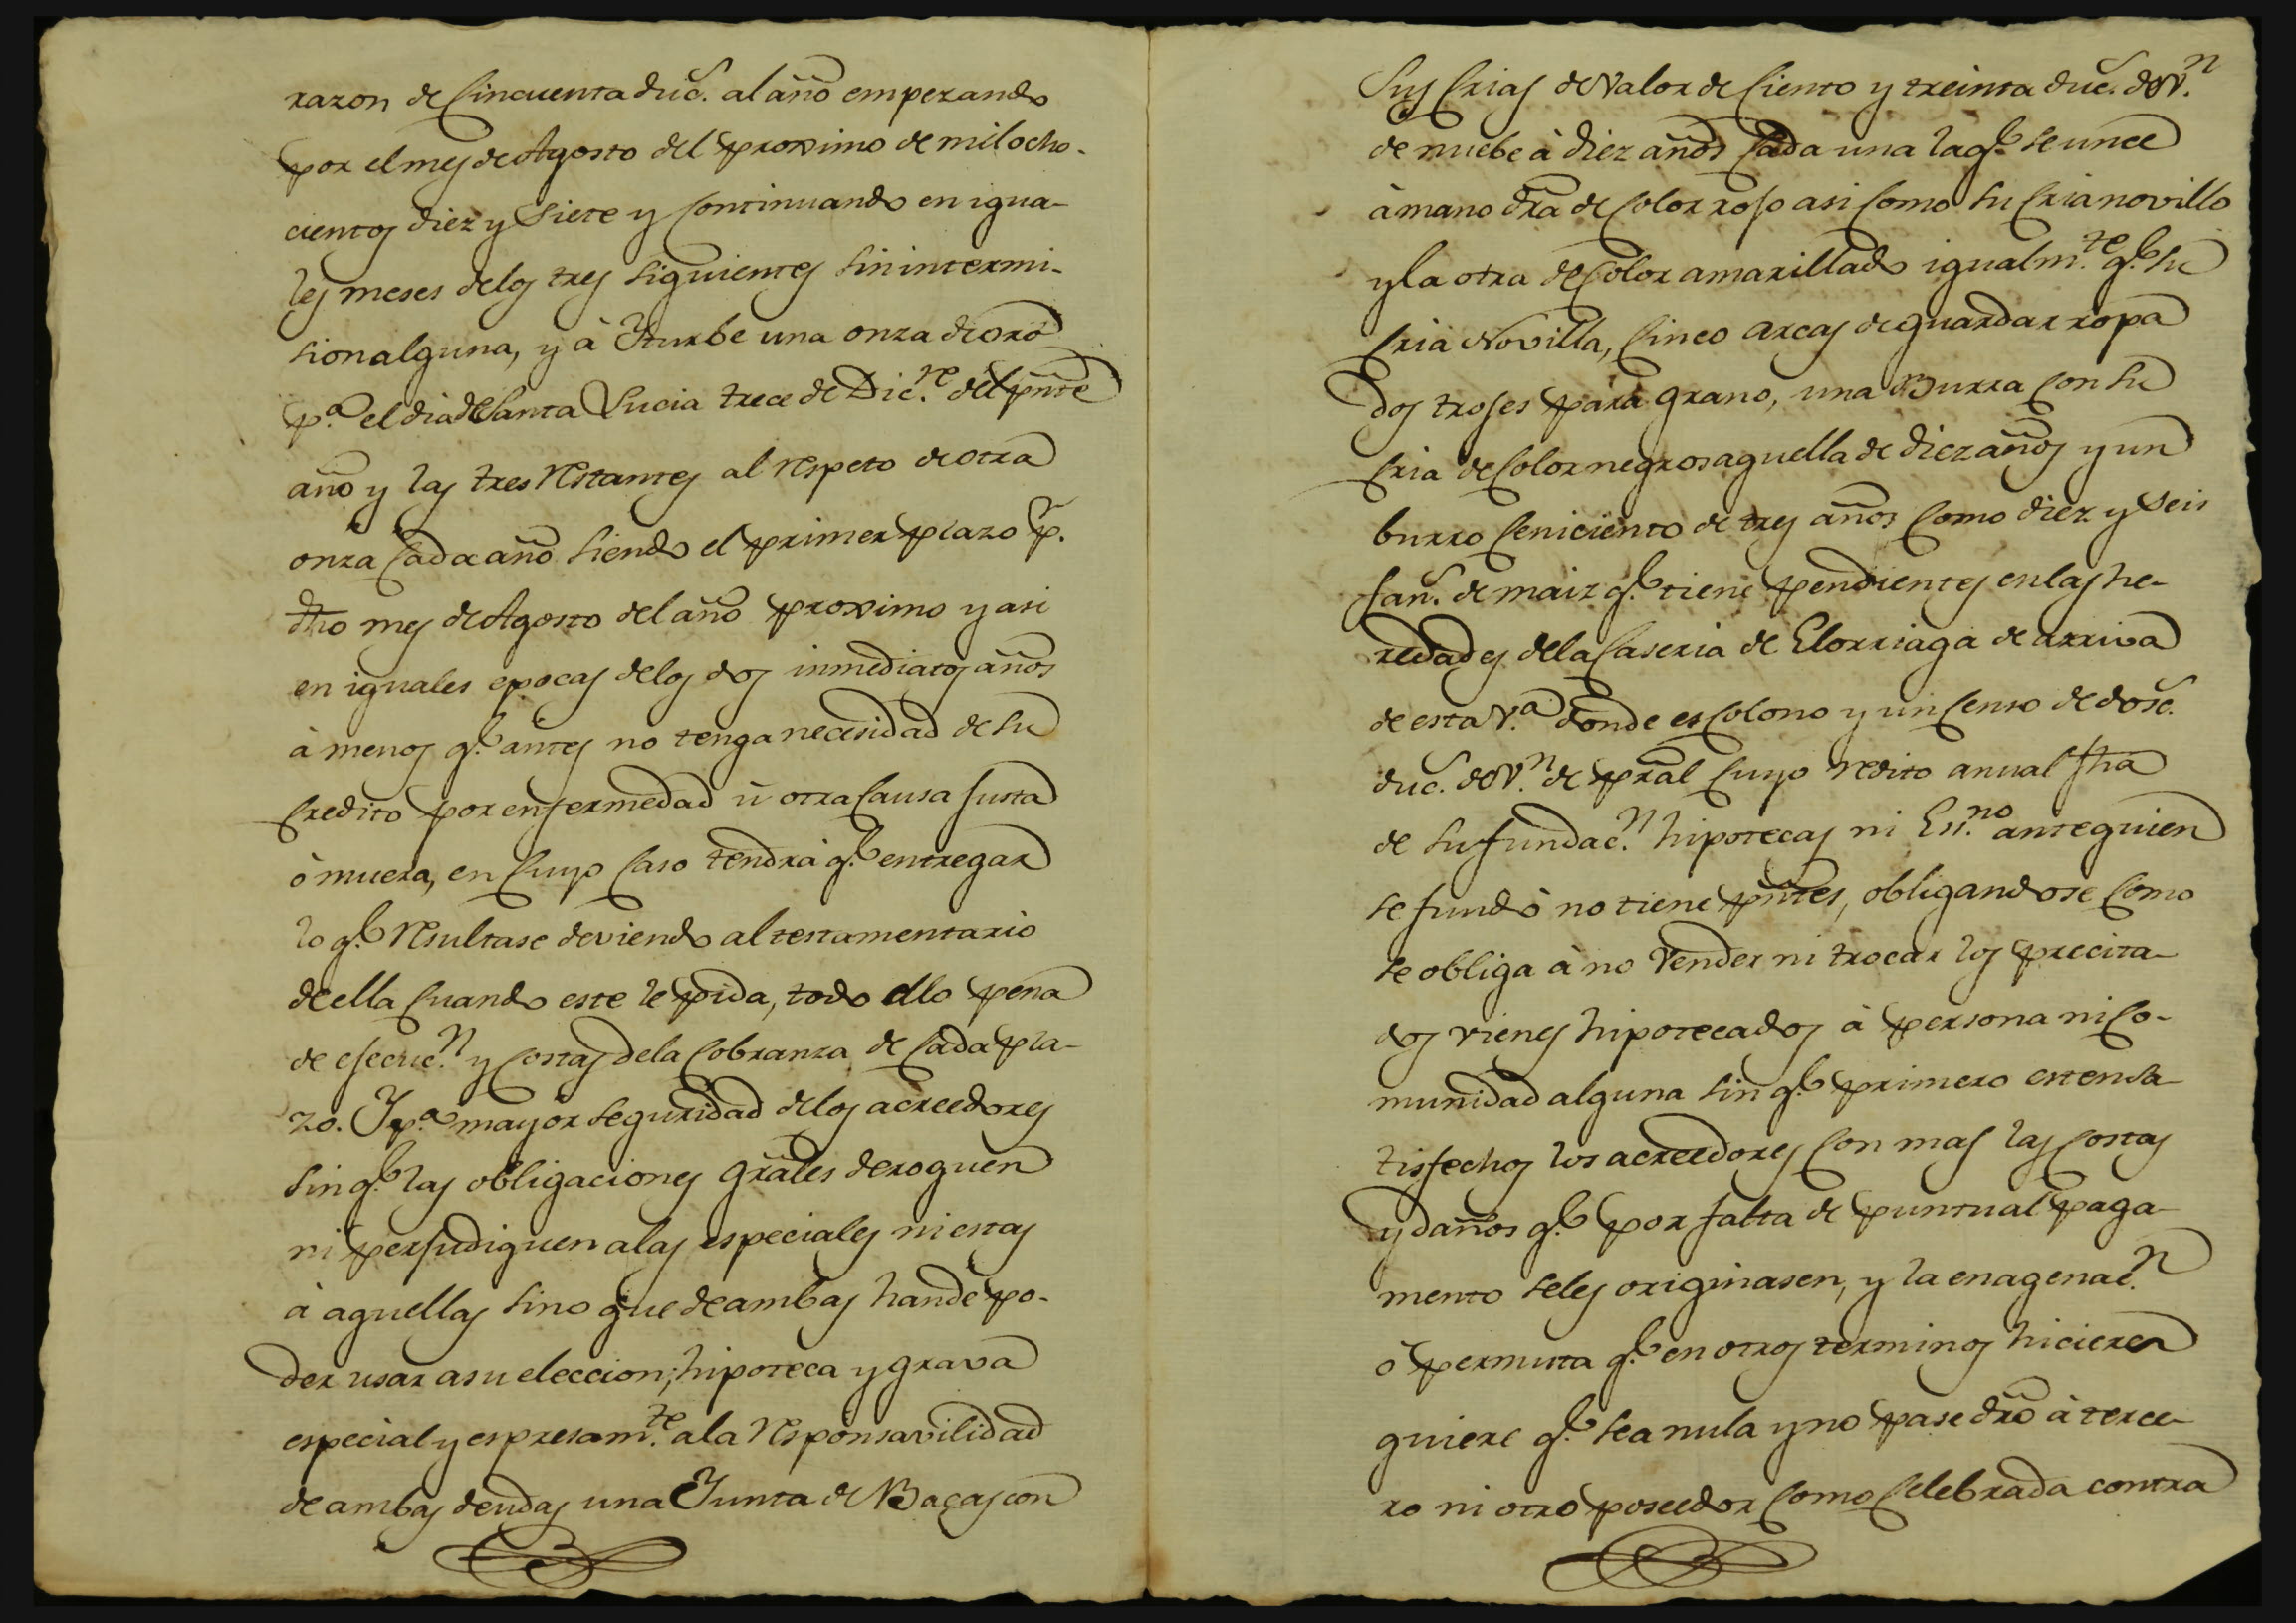 razon de Cincuenta duc.ˢ al año empezando
por el mes de Agosto del proximo de mil ocho-
cientos diez y Siete y Continuando en igua-
les meses delos tres siguientes sin intermi-
sion alguna, y à Yturbe una onza de oro
p.ª el dia de Santa Lucia trece de Dic.ʳᵉ del pñte
año y las tres restantes al respeto de otra
onza Cada año siendo el primer plazo p.ʳ
dho mes de Agosto del año proximo y asi
en iguales epocas delos dos inmediatos años
à menos q.ᵉ antes no tenga necesidad de su
Credito por enfermedad ù otra Causa Justa
ò muera, en Cuyo Caso tendrà q.ᵉ entregar
lo q.ᵉ resultase deviendo al testamentario
de ella Cuando este le pida, todo ello pena
de ejecuc.ⁿ y Costas dela Cobranza de Cada pla-
zo. Y p.ª mayor seguridad delos acreedores
sin q.ᵉ las obligaciones grãles deroguen
ni perjudiquen alas especiales ni estas
à aquellas sino que de ambas han de po-
der usar asu eleccion; hipoteca y grava
especial y espresam.ᵗᵉ ala responsavilidad
de ambas deudas una Junta de Bacas con
Sus Crias de Valor de Ciento y treinta duc.ˢ de v.ⁿ
de nuebe à diez años Cada una la q.ᵉ se unce
à mano dra de Color roso asi Como su Cria novillo
y la otra de Color amarillado igualm.ᵗᵉ q.ᵉ su
Cria Novilla, Cinco arcas de guardar ropa
dos trojes para grano, una Burra Con su
Cria de Color negros aquella de diez años y un
burro Ceniciento de tres años Como diez y Seis
fan.ˢ de maiz q.ᵉ tiene pendientes en las he-
redades dela Caseria de Elorriaga de arriva
de esta v.ª donde es Colono y un Censo de dosc.ˢ
duc.ˢ de v.ⁿ de pral Cuyo redito anual fha
de su fundac.ⁿ hipotecas ni Ess.ⁿᵒ ante quien
se fundò no tiene pñtes, obligandose Como
se obliga à no Vender ni trocar los precita-
dos vienes hipotecados à persona ni Co-
munidad alguna sin q.ᵉ primero esten sa-
tisfechos los acreedores Con mas las Costas
y daños q.ᵉ por falta de puntual paga-
mento seles originasen, y la enagenac.ⁿ
ò permuta q.ᵉ en otros terminos hiciere
quiere q.ᵉ sea nula y no pase dro à terce-
ro ni otro poseedor Como Celebrada contra